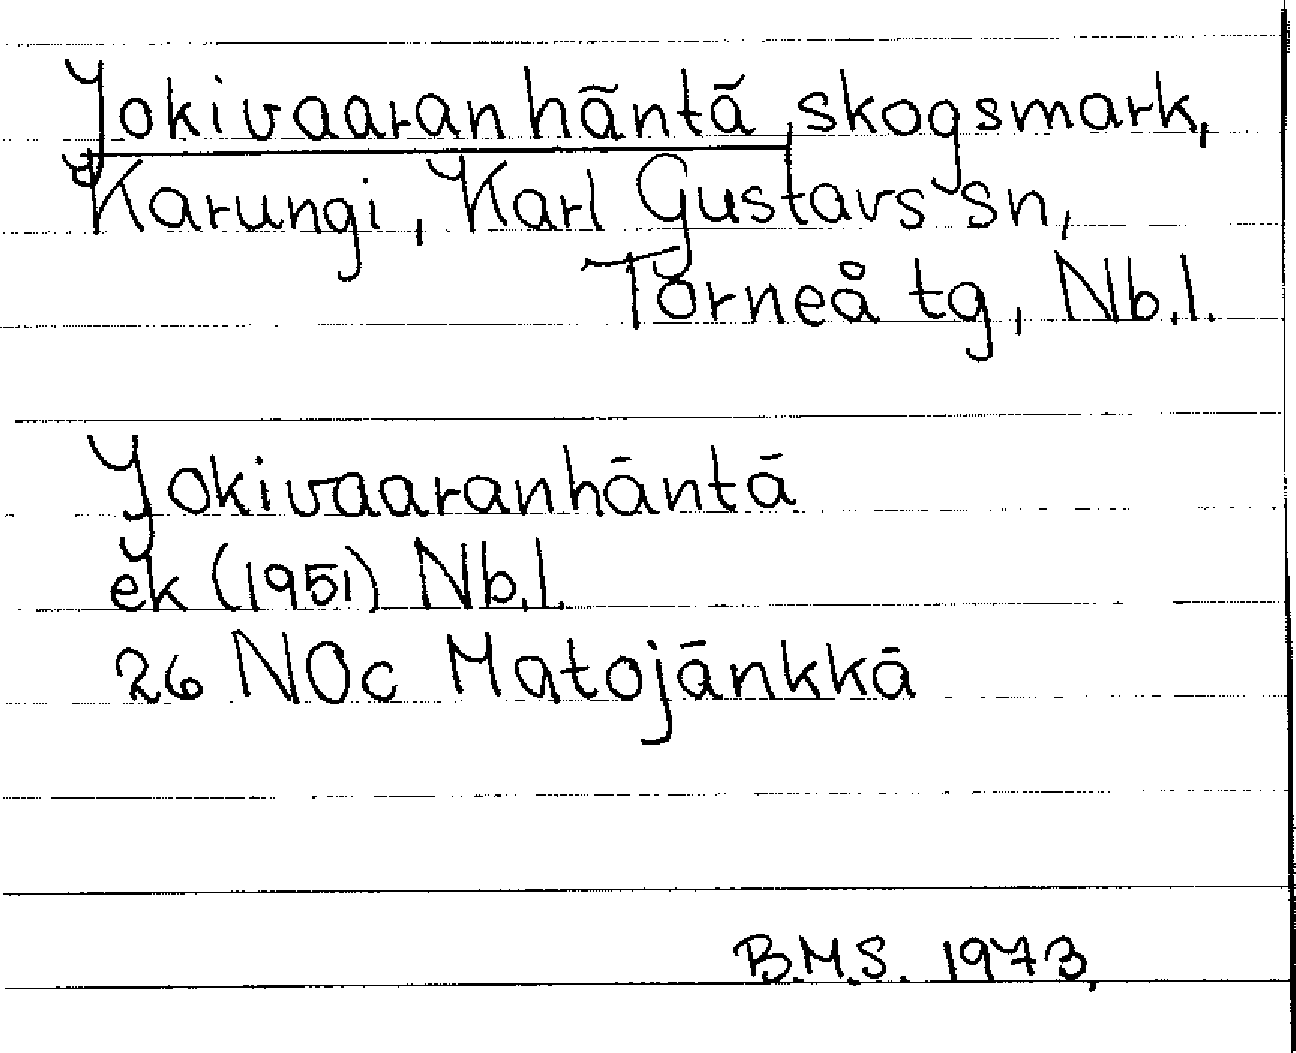 Jokivaaranhäntä, skogsmark,
Karungi, Karl Gustavs sn,
Torneå tg, Nb.l.
Jokivaaranhäntä
ek (1951) Nb.l.
26 NOc Matojänkkä
B.M.S. 1973,